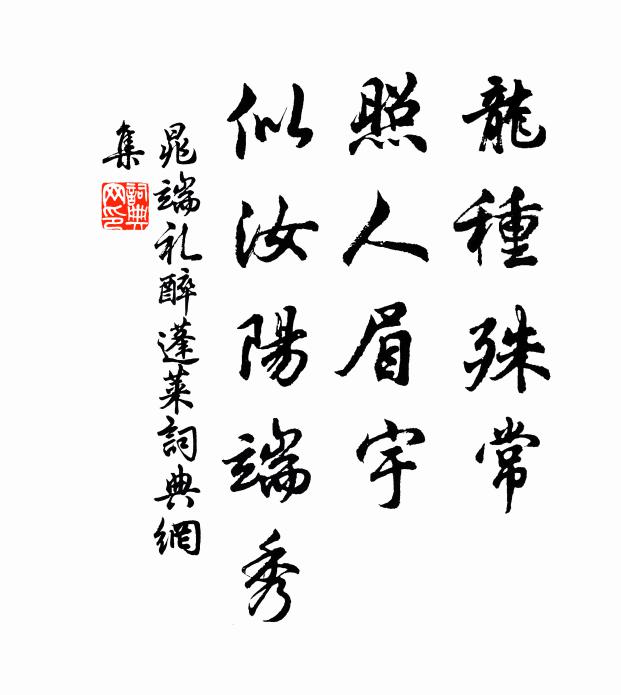 龍種殊常
照人眉宇
似汝陽端秀
晁端礼醉蓬莱詞典網
集
詞典
网印